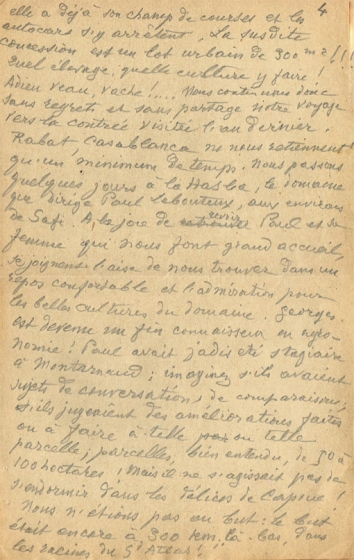 4
elle a déjà son champ de courses et les
autocars s'y arrêtent. La susdite
concession est un lot urbain de 300 m2 !!!
Quel élevage, quelle culture y faire !
Adieu veau, vache !.... Nous continuons donc
sans regrets et sans partage notre voyage
vers la contrée visitée l'an dernier.
Rabat, Casablanca ne nous retiennent
qu'un minimum de temps. Nous passons
quelques jours à la Hasba, le domaine
que dirige Paul Lebouteux, aux environs
de Safi. A la joie de revoir Paul et sa
femme qui nous font grand accueil,
se joignent l'aise de nous trouver dans un
repos confortable et l'admiration pour
les belles cultures du domaine. Georges
est devenu un fin connaisseur en agro-
nomie ! Paul avait jadis été stagiaire
à Montarnaud ; imaginez s'ils avaient
sujets de conversations, de comparaisons ;
s'ils jugeaient des améliorations faites
ou à faire à telle ou telle
parcelle, parcelles, bien entendu, de 50 à
100 hectares ! Mais il ne s'agissait pas de
s'endormir dans les délices de Capoue !
Nous n'étions pas au but : le but
était encore à 300 km. là-bas, dans
les racines du St Atlas !